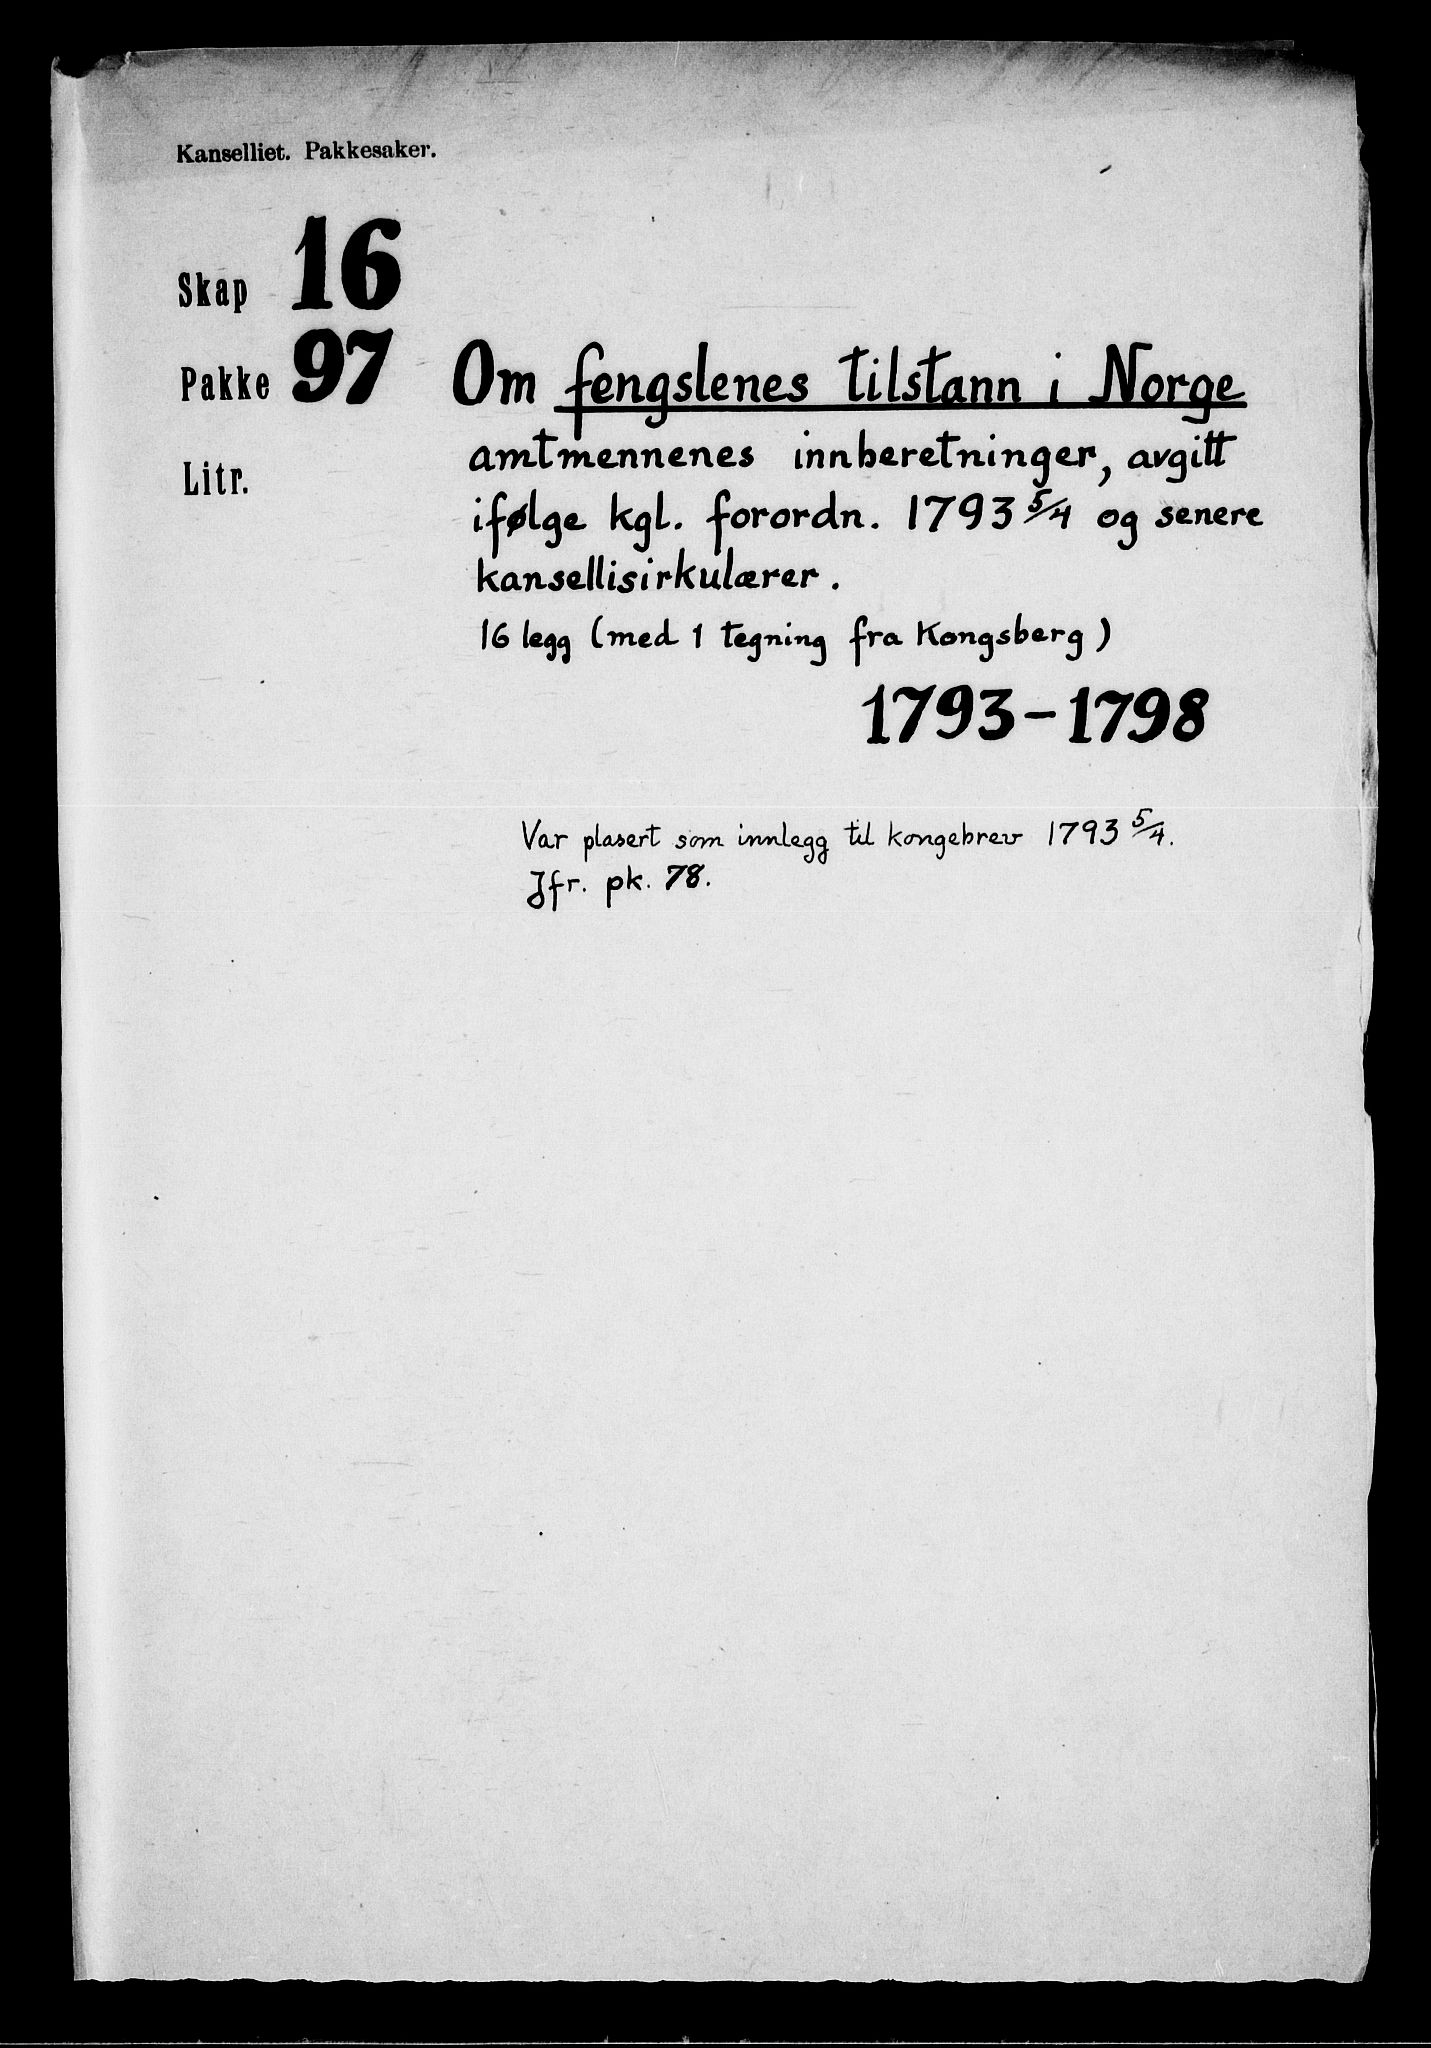 Kanselliet. Pakkesaker.
Skap 16
Pakke 97
Litr.
Om fengslenes tilstann i Norge
amtmennenes innberetninger, avgitt
ifølge kgl. forordn. 1793 5/4 og senere
kansellisirkulærer.
16 legg (med 1 tegning fra Kongsberg)
1793-1798
Var plasert som innlegg til kongebrev 1793 5/4.
Jfr. pk. 78.